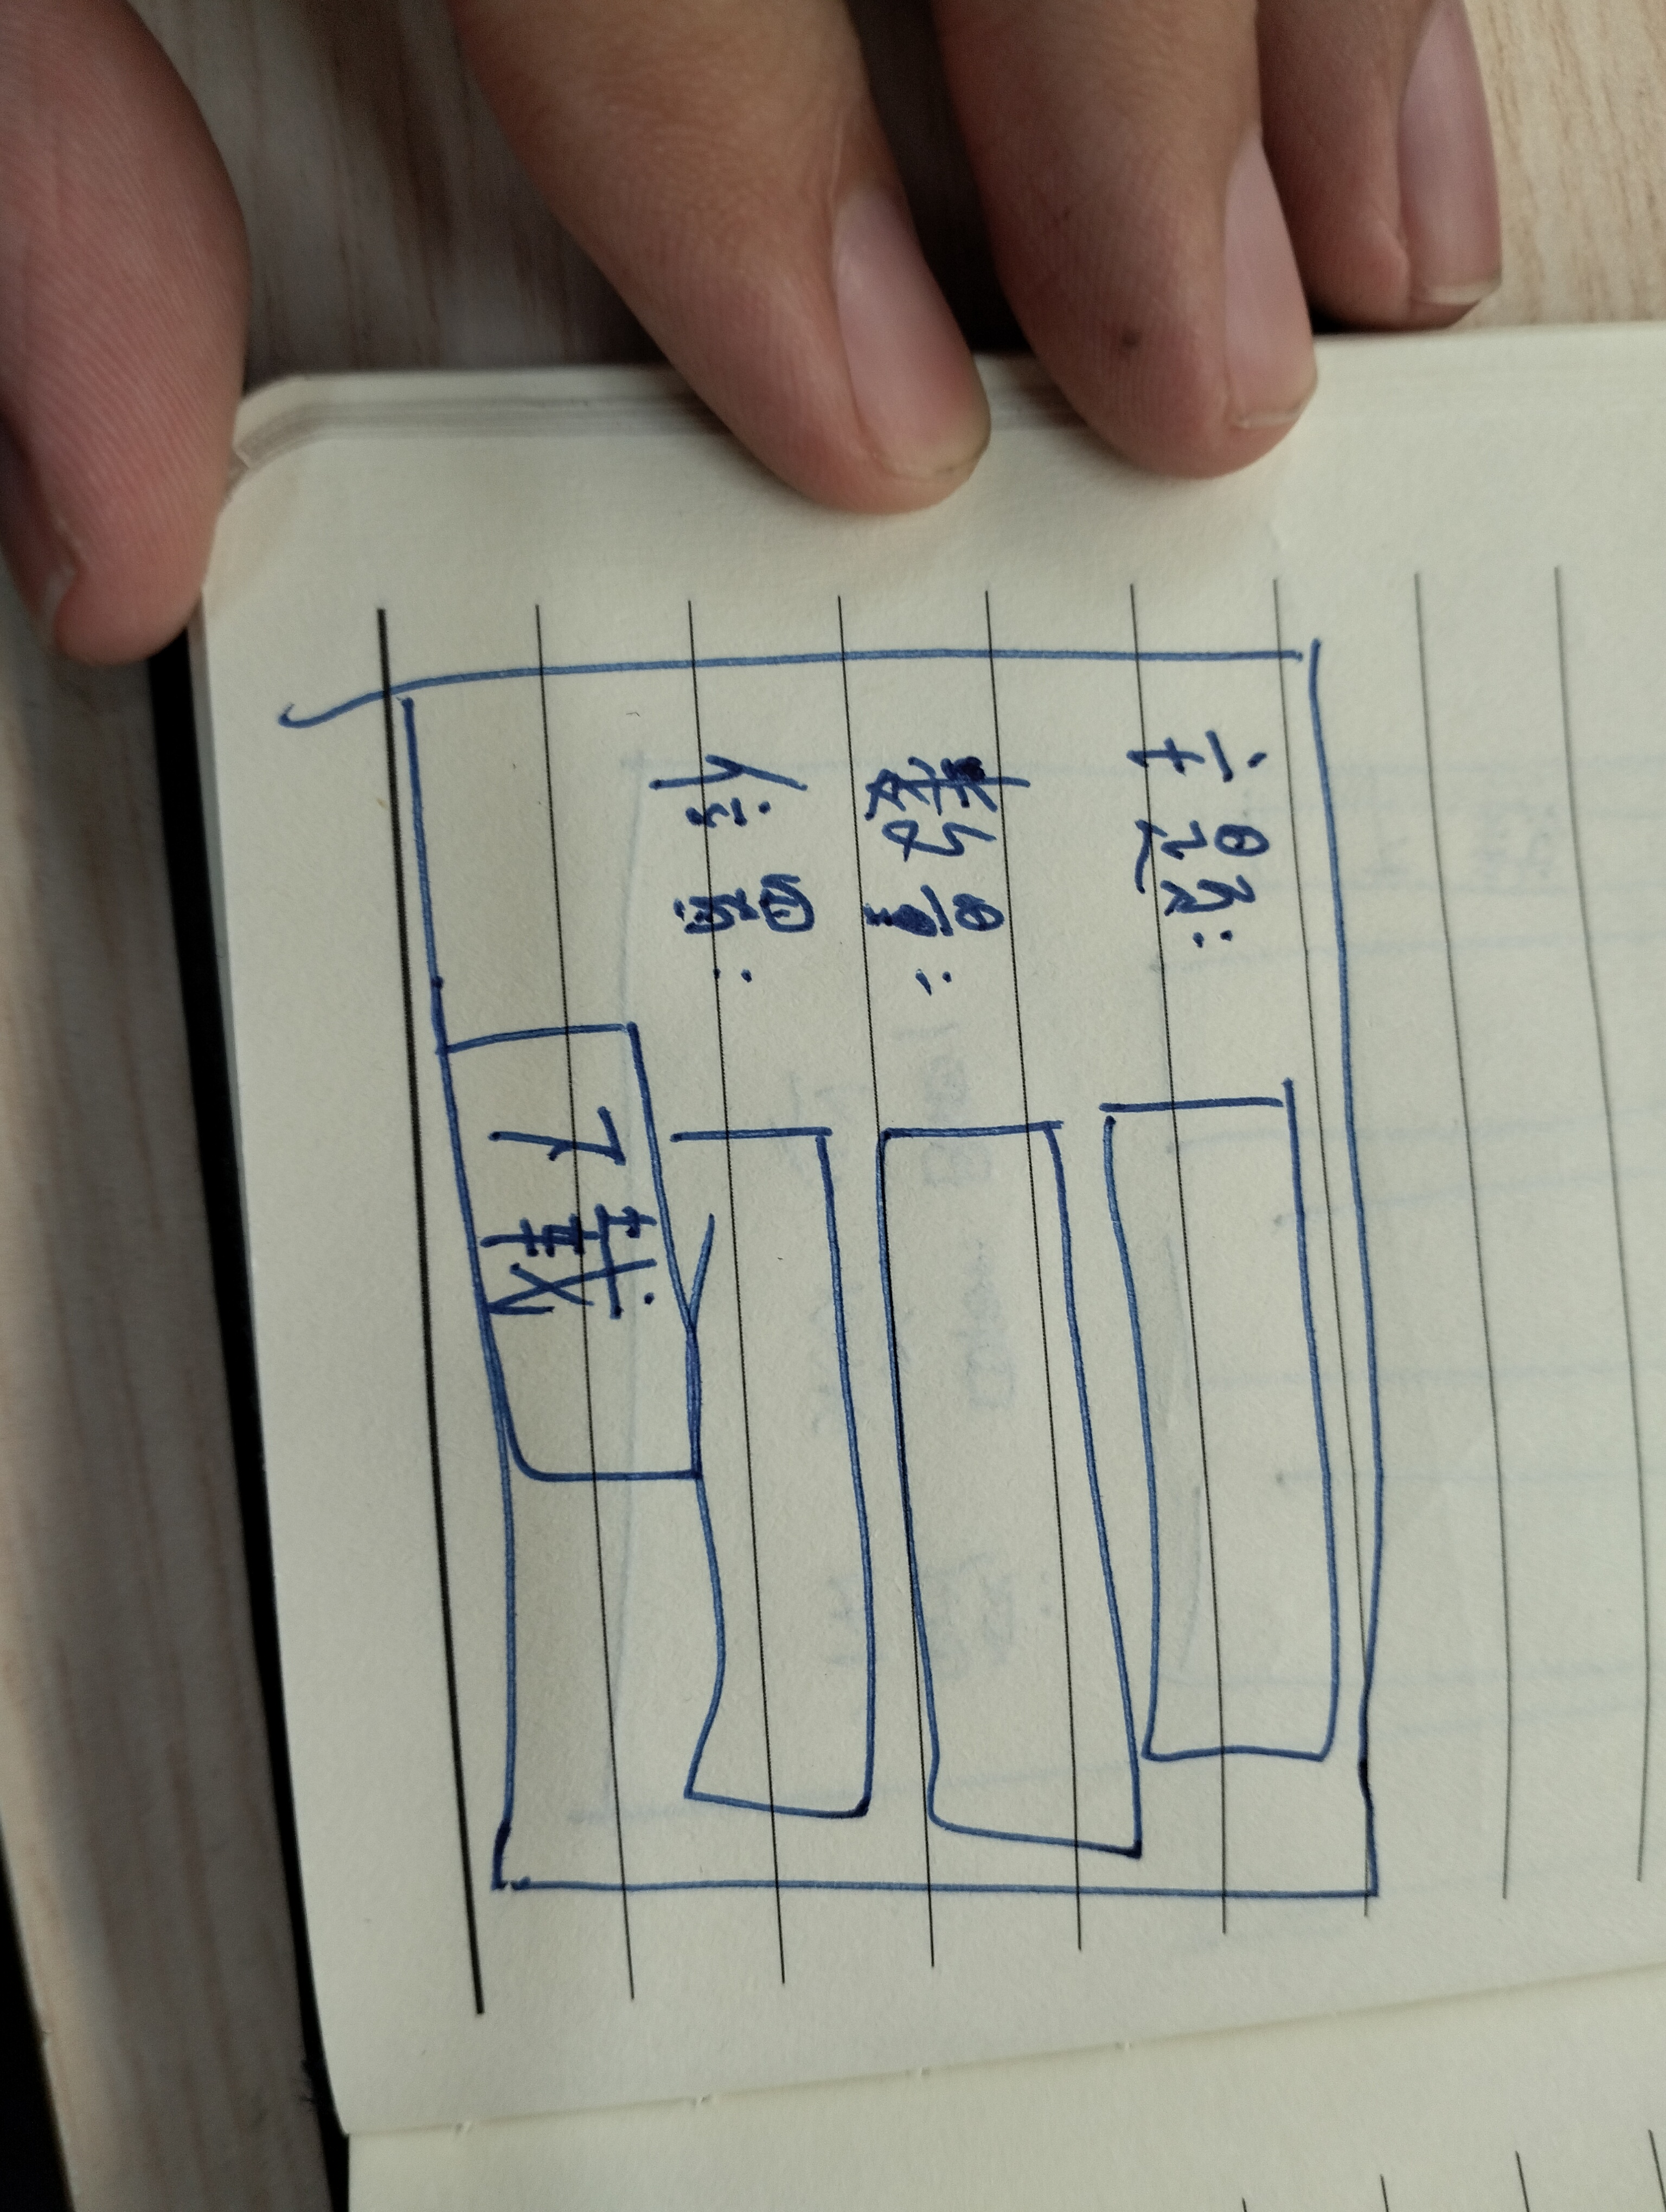 主题:
数量:
位置:
下载